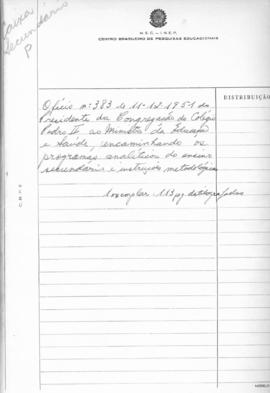 Caixa
Secundário
P
M.E.C. - I.N.E.P.
CENTRO BRASILEIRO DE PESQUISAS EDUCACIONAIS
DISTRIBUIÇÃO
Ofício nº 383 de 11-12-1951 do
Presidente da Congregação do Colégio
Pedro II, ao Ministro da Educação
e Saúde, encaminhando os
programas analíticos do ensino
secundário e instruções metodológicas
1 exemplar 113 pg. datilografadas
C.B.P.E
MODELO